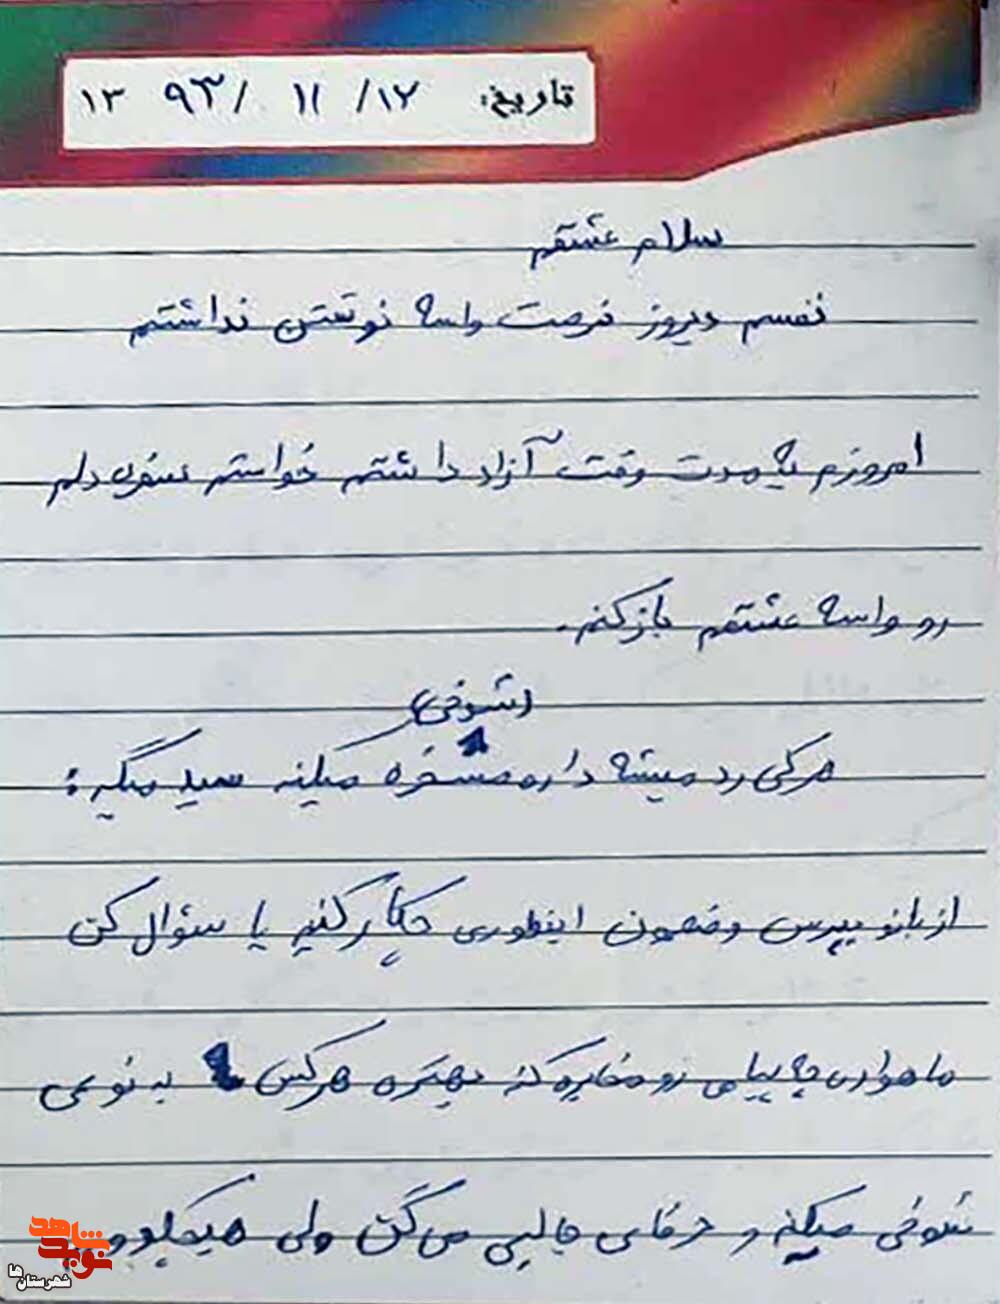 تاریخ: ۱۲/ ۱۱/ ۹۳ ۱۳
سلام عشقم
نفسم دیروز فرصت واسه نوشتن نداشتم
امروزم یه مدت وقت آزاد داشتم خواستم سفره دلم
رو واسه عشقم باز کنم.
(شوخی)
هرکی رد میشه داره مسخره میکنه سید میگه:
از بانو بپرس وضعمون اینطوری چکار کنیم یا سئوال کن
ماهواره یه پیامی رو مخابره کنه بهتره هرکس به نوعی
شوخی میکنه و حرفای جالبی می گن ولی
نوید شاهد
شهرستان‌ها